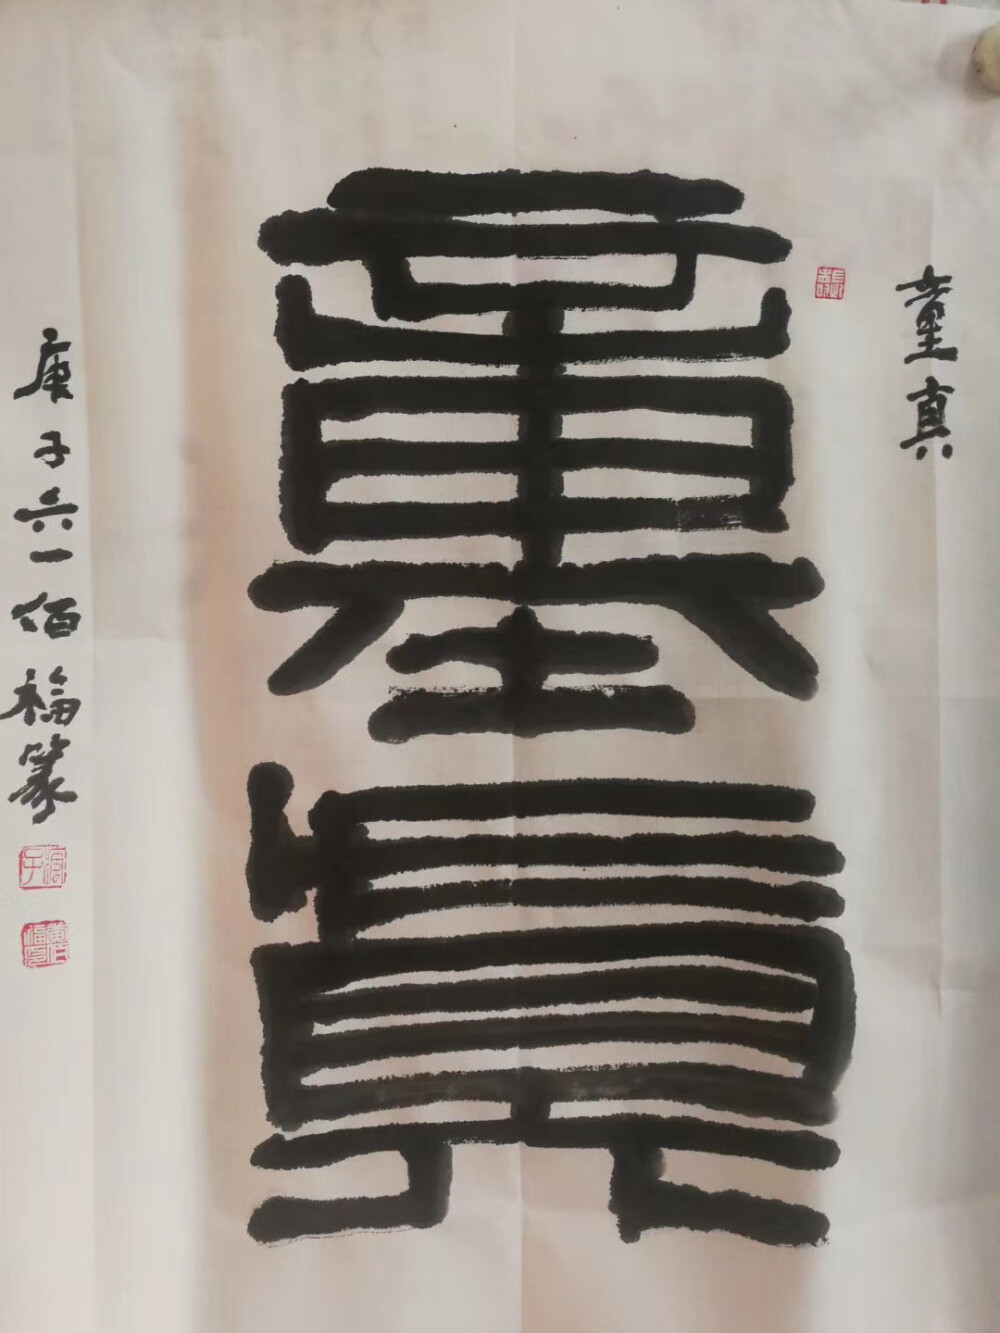 童真
童真
庚子六一佰福篆